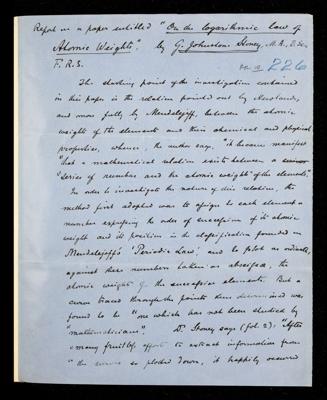 Report on a paper entitled "On the logarithmic law of
Atomic Weights", by G. Johnstone Stoney, M.A., D.Sc.,
F.R.S.
226
The starting point of the investigation contained
in this paper is the relation pointed out by Newlands,
and more fully by Mendelejeff, between the atomic
weights of the elements and their chemical and physical
properties, whence, the author says, "it became manifest
"that a mathematical relation exists between a
"series of numbers and the atomic weights of the elements".
In order to investigate the nature of this relation, the
method first adopted was to assign to each element a
number expressing the order of succession of its atomic
weight and its position in the classification founded on
Mendelejeff's 'Periodic Law', and to plot as ordinates,
against these numbers taken as abscissæ, the
atomic weights of the successive elements. But a
curve traced through the points thus determined was
found to be "one which has not been studied by
"mathematicians". Dr. Stoney says (fol. 2): "After
"many fruitless efforts to extract information from
"the curve so plotted down, it happily occurred